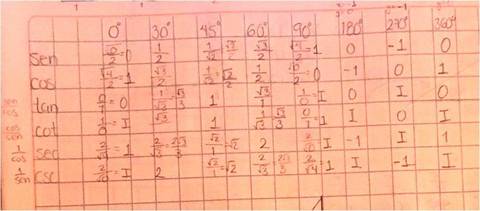 0° 30° 45° 60° 90° 180° 270° 360°
sen √0/2=0 1/2 1/√2 √2/2 √3/2 √4/2=1 0 -1 0
cos √4/2=1 √3/2 1/√2=√2/2 1/2 √0/2=0 -1 0 1
sen/cos tan 0/1=0 1/√3 √3/3 1 √3/1 1/0=I 0 I 0
cos/sen cot 1/0=I √3 1 1/√3 √3/3 0/1=1 I 0 I
1/cos sec 2/√4=1 2/√3=2√3/3 √2/1=√2 2 2/√0=I -1 I 1
1/sen csc 2/√0=I 2 √2/1=√2 2/√3 2√3/3 2/√4=1 I -1 I